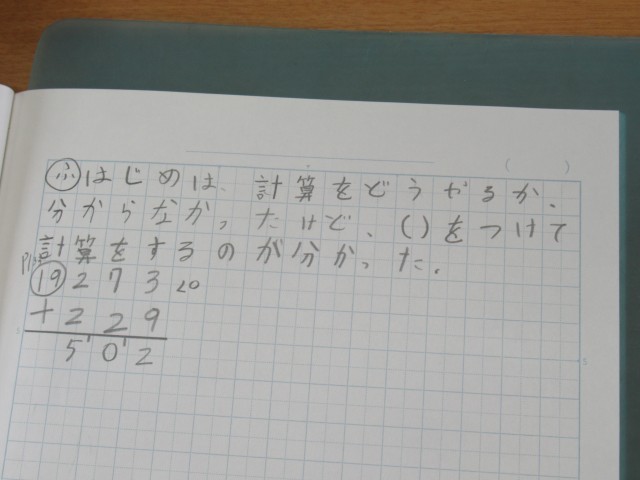 ふはじめは、計算をどうやるか、
分からなかったけど、()をつけて
計算をするのが分かった。
19 273
+229
502
( )